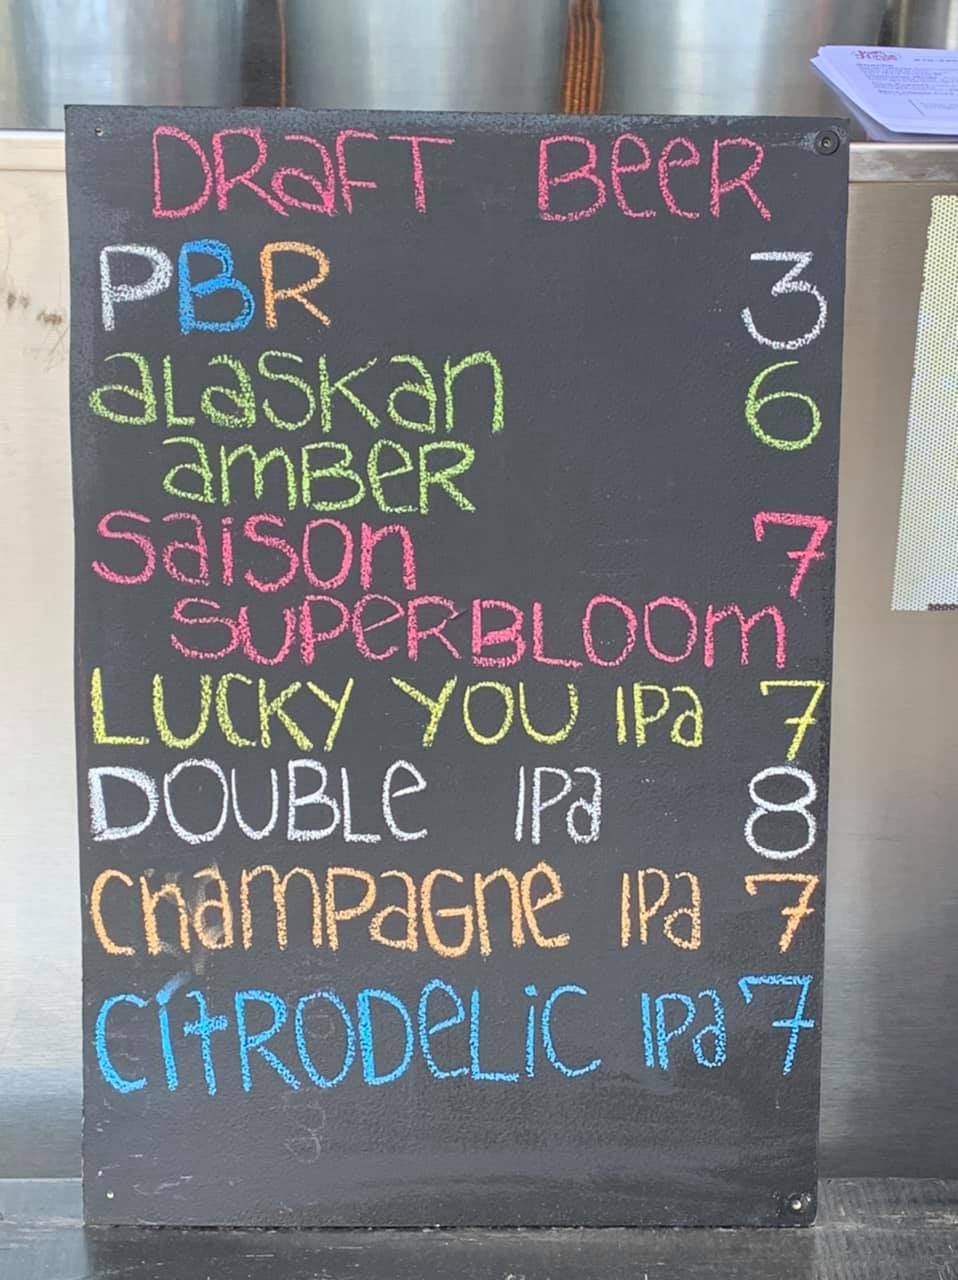 DRaFT BeeR
PBR 3
aLasKan 6
amBeR
saison 7
SUPeRBLOOm
LUCKY YOU IPa 7
DOUBLe IPa 8
CHamPaGne IPa 7
CiTRODeLiC IPa 7